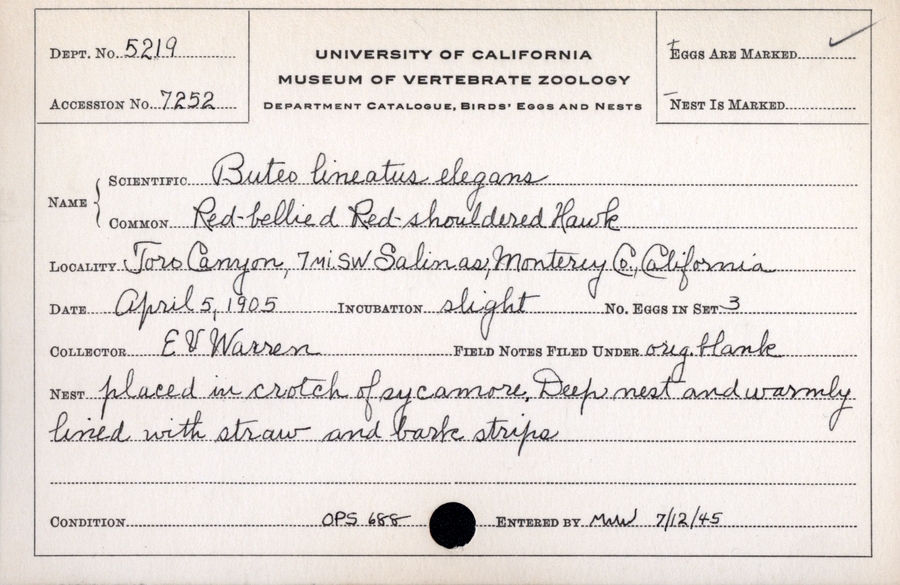 Dept. No. 5219
Accession No. 7252
UNIVERSITY OF CALIFORNIA
MUSEUM OF VERTEBRATE ZOOLOGY
Department Catalogue, Birds' Eggs and Nests
Eggs Are Marked
Nest Is Marked
Name
Scientific Buteo lineatus elegans
Common Red-bellied Red-shouldered Hawk
Locality Toro Canyon, 7 mi. SW Salinas, Monterey Co., California
Date April 5, 1905 Incubation slight No. Eggs in Set 3
Collector E V Warren Field Notes Filed Under orig. blank
Nest placed in crotch of sycamore. Deep nest and warmly
lined with straw and bark strips
Condition OPS 688 Entered by 7/12/45